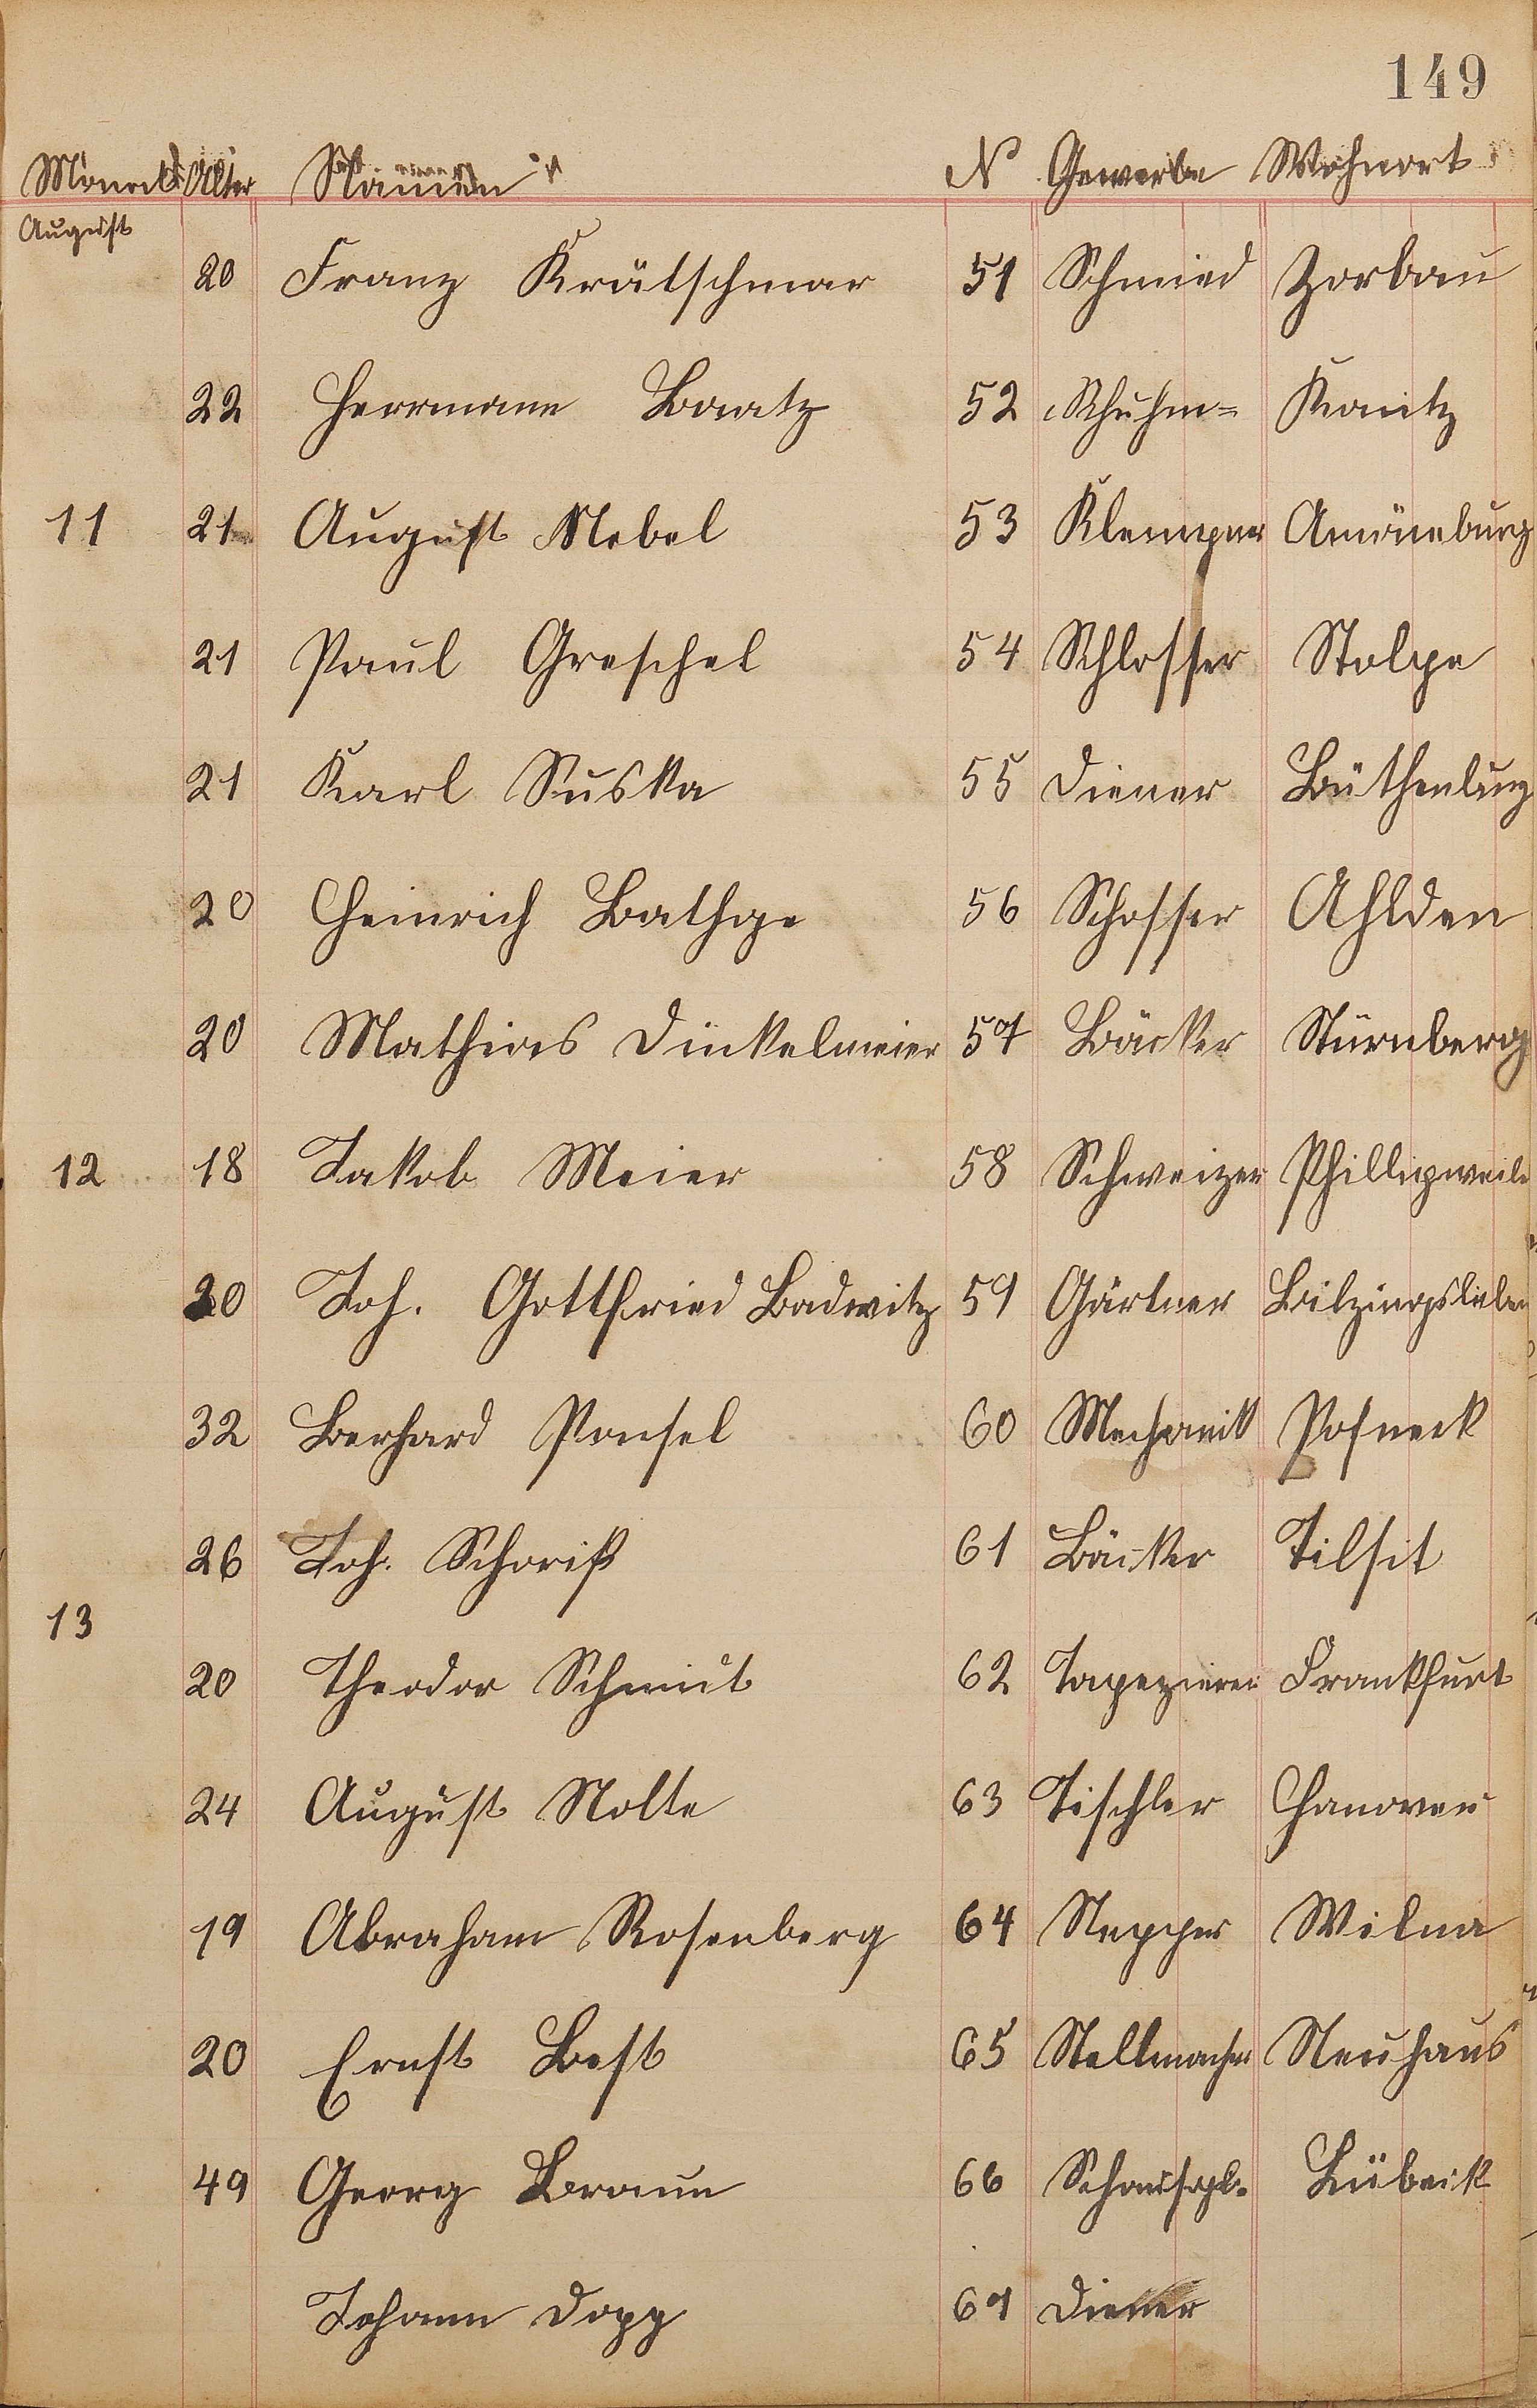 149
Monat Alter Namen N Gewerbe Wohnort
August
20 Franz Krätschmar 51 Schmied Zorbau
22 Herrmann Baatz 52 Schuhm= Kanitz
11 21 August Nebel 53 Klempner Amöneburg
21 Paul Greschel 54 Schlosser Stolpe
21 Karl Suska 55 Diener
20 Heinrich Bathge 56 Schosser Ahlden
20 Mathias Dinkelmeier 57 Bäcker Nürnberg
12 18 Jakob Meier 58 Schweizer Phillipweile
20 Joh. Gottfried Badwitz 59 Gärtner Bilzingsleben
32 Berhard Ponsel 60 Mechanik Posneck
26 Joh. 61 Bäcker Tilsit
13
20 Theodor Schmidt 62 Tapezierer Frankfurt
24 August Nolte 63 Tischler Hanover
19 Abraham Rosenberg 64 Stepper Wilna
20 Ernst Best 65 Stellmacher Neuhaus
49 Georg Braun 66 Schauspl. Lübeck
Johann Dopp 67 Diener